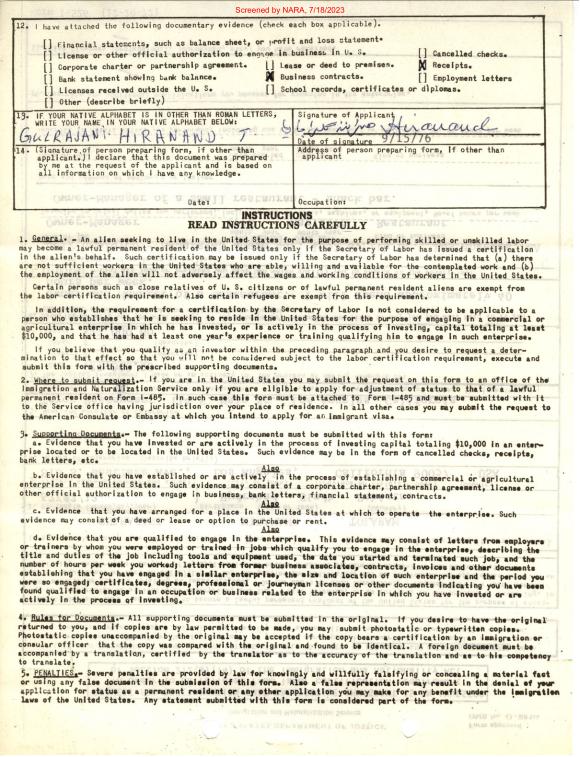 Screened by NARA, 7/18/2023
12. I have attached the following documentary evidence (check each box applicable).
[] Financial statements, such as balance sheet, or profit and loss statement.
[] License or other official authorization to engage in business in U. S.
[] Cancelled checks.
[] Corporate charter or partnership agreement.
[] Lease or deed to premises.
[X] Receipts.
[] Bank statement showing bank balance.
[X] Business contracts.
[] Employment letters
[] Licenses received outside the U. S.
[] School records, certificates or diplomas.
[] Other (describe briefly)
13. IF YOUR NATIVE ALPHABET IS IN OTHER THAN ROMAN LETTERS,
WRITE YOUR NAME IN YOUR NATIVE ALPHABET BELOW:
GULRAJANI HIRANAND T.
Signature of Applicant
Hiranand
Date of signature 9/15/76
14. (Signature of person preparing form, if other than
applicant.) I declare that this document was prepared
by me at the request of the applicant and is based on
all information on which I have any knowledge.
Date:
Address of person preparing form, if other than
applicant
Occupation:
INSTRUCTIONS
READ INSTRUCTIONS CAREFULLY
1. General. - An alien seeking to live in the United States for the purpose of performing skilled or unskilled labor
may become a lawful permanent resident of the United States only if the Secretary of Labor has issued a certification
in the alien's behalf. Such certification may be issued only if the Secretary of Labor has determined that (a) there
are not sufficient workers in the United States who are able, willing and available for the contemplated work and (b)
the enployment of the alien will not adversely affect the wages and working conditions of workers in the United States.
Certain persons such as close relatives of U. S. citizens or of lawful permanent resident aliens are exempt from
the labor certification requirement. Also certain refugees are exempt from this requirement.
In addition, the requirement for a certification by the Secretary of Labor is not considered to be applicable to a
person who establishes that he is seeking to reside in the United States for the purpose of engaging in a commercial or
agricultural enterprise in which he has invested, or is actively in the process of investing, capital totaling at least
$10,000, and that he has had at least one year's experience or training qualifying him to engage in such enterprise.
If you believe that you qualify as an investor within the preceding paragraph and you desire to request a deter-
mination to that effect so that you will not be considered subject to the labor certification requirement, execute and
submit this form with the prescribed supporting documents.
2. Where to submit request. - If you are in the United States you may submit the request on this form to an office of the
Immigration and Naturalization Service only if you are eligible to apply for adjustment of status to that of a lawful
permanent resident on Form I-485. In such case this form must be attached to Form I-485 and must be submitted with it
to the Service office having jurisdiction over your place of residence. In all other cases you may submit the request to
the American Consulate or Embassy at which you intend to apply for an immigrant visa.
3. Supporting Documents. - The following supporting documents must be submitted with this form:
a. Evidence that you have invested or are actively in the process of investing capital totaling $10,000 in an enter-
prise located or to be located in the United States. Such evidence may be in the form of cancelled checks, receipts,
bank letters, etc.
Also
b. Evidence that you have established or are actively in the process of establishing a commercial or agricultural
enterprise in the United States. Such evidence may consist of a corporate charter, partnership agreement, license or
other official authorization to engage in business, bank letters, financial statement, contracts.
Also
c. Evidence that you have arranged for a place in the United States at which to operate the enterprise. Such
evidence may consist of a deed or lease or option to purchase or rent.
Also
d. Evidence that you are qualified to engage in the enterprise. This evidence may consist of letters from employers
or trainers by whom you were employed or trained in jobs which qualify you to engage in the enterprise, describing the
title and duties of the job including tools and equipment used, the date you started and terminated such job, and the
number of hours per week you worked; letters from former business associates, contracts, invoices and other documents
establishing that you have engaged in a similar enterprise, the size and location of such enterprise and the period you
were so engaged; certificates, degrees, professional or journeyman licenses or other documents indicating you have been
found qualified to engage in an occupation or business related to the enterprise in which you have invested or are
actively in the process of investing.
4. Rules for Documents. - All supporting documents must be submitted in the original. If you desire to have the original
returned to you, and if copies are by law permitted to be made, you may submit photostatic or typewritten copies.
Photostatic copies unaccompanied by the original may be accepted if the copy bears a certification by an immigration or
consular officer that the copy was compared with the original and found to be identical. A foreign document must be
accompanied by a translation, certified by the translator as to the accuracy of the translation and as to his competency
to translate.
5. PENALTIES. - Severe penalties are provided by law for knowingly and willfully falsifying or concealing a material fact
or using any false document in the submission of this form. Also a false representation may result in the denial of your
application for status as a permanent resident or any other application you may make for any benefit under the immigration
laws of the United States. Any statement submitted with this form is considered part of the form.